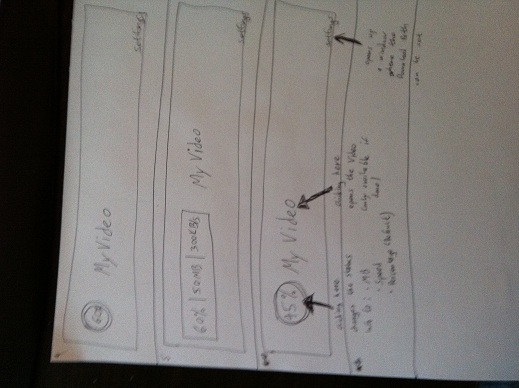 60%
My Video
settings
5
60% | 50MB | 300KB/s
My Video
settings
45% My Video
settings
clicking here
changes the status
info to: · MB
· Speed
· Percentage (Default)
clicking here
opens the Video
(only available if
done)
opens up
a window
where the
Download Path
can be set